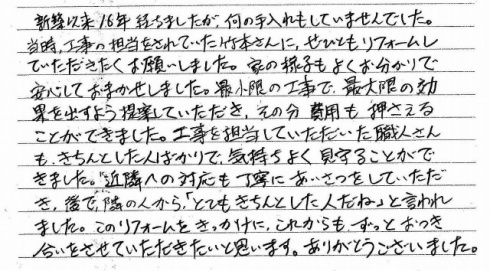 新築以来16年経ちましたが、何の手入れもしていませんでした。
当時、工事の担当をされていた竹本さんに、ぜひともリフォームし
ていただきたくお願いしました。家の様子もよくお分かりで
安心しておまかせしました。最小限の工事で、最大限の効
果を出すよう提案していただき、その分費用も押さえる
ことができました。工事を担当していただいた職人さん
も、きちんとした人ばかりで、気持ちよく見守ることがで
きました。近隣への対応も丁寧にあいさつをしていただ
き、後で、隣の人から、「とてもきちんとした人だね」と言われ
ました。このリフォームをきっかけに、これからも、ずっとおつき
合いをさせていただきたいと思います。ありがとうございました。